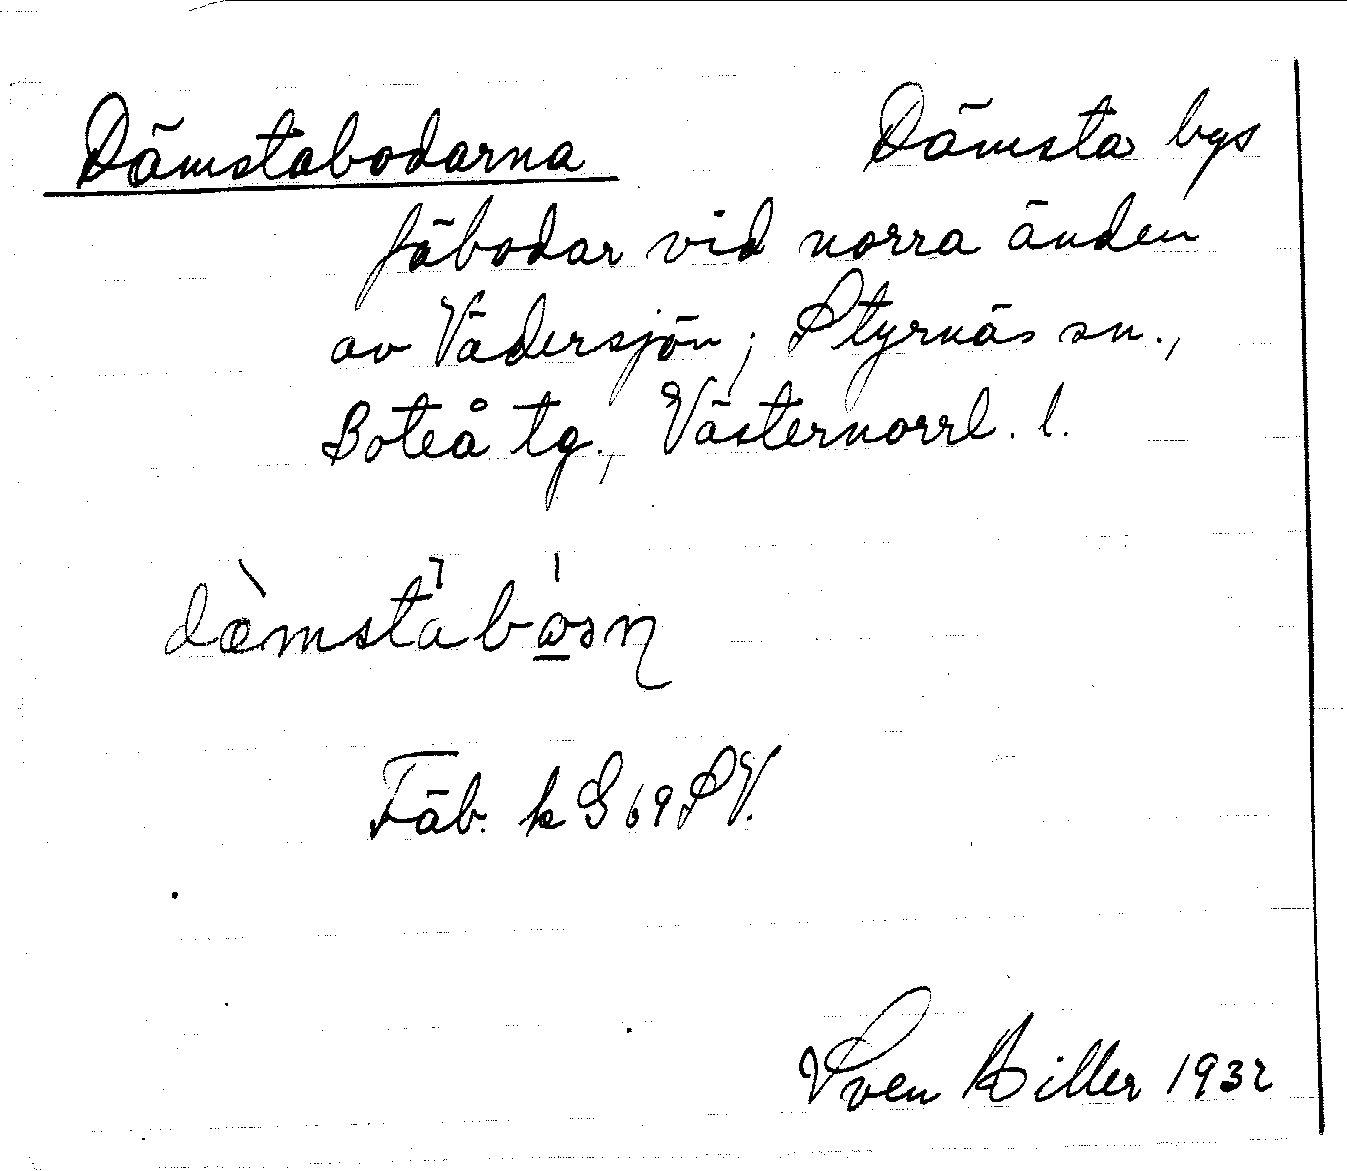 Dämstabodarna Dämsta bys
fäbodar vid norra änden
av Vädersjön; Styrnäs sn.,
Boteå tg., Västernorrl. l.
Fäb. k G 69 SV.
Sven Hiller 1932